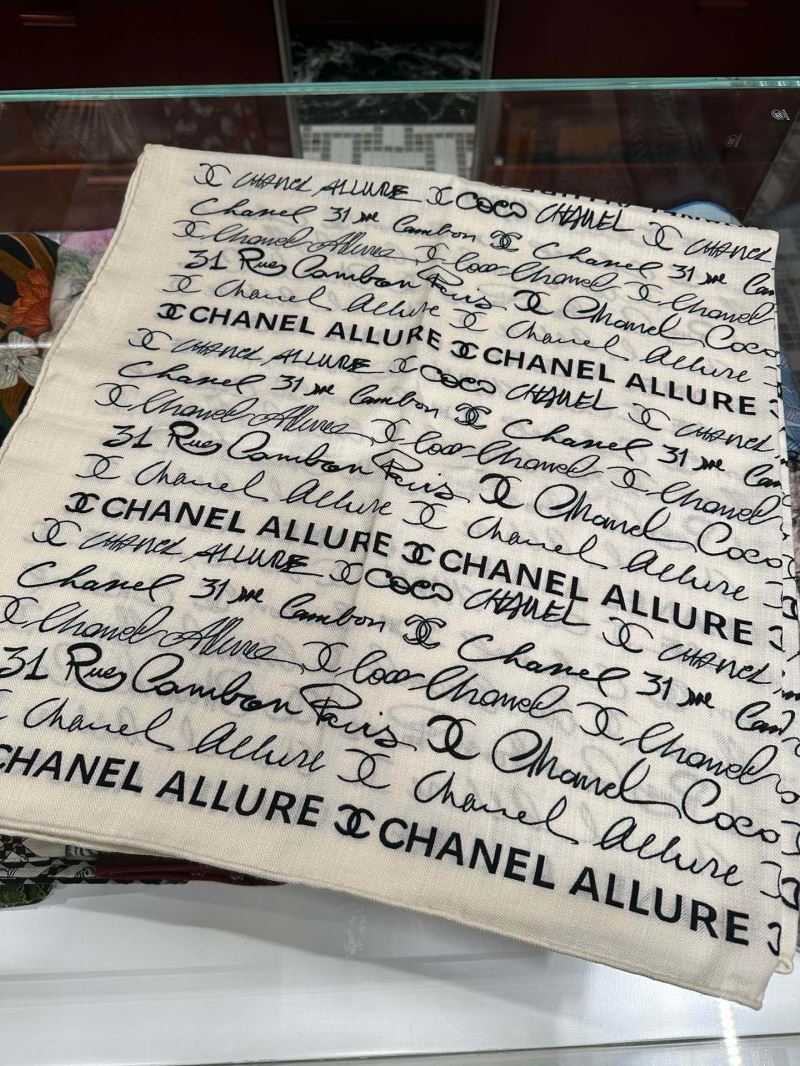 CHANEL ALLURE COCO CHANEL CHANEL
Chanel 31 rue Cambon Chanel 31 rue Cam
Chanel Allure Coco Chanel Chanel
31 Rue Cambon Paris Chanel Coco
Chanel Allure Chanel Allure
CHANEL ALLURE CHANEL ALLURE
CHANEL ALLURE COCO CHANEL CHANEL
Chanel 31 rue Cambon Chanel 31 rue Cam
Chanel Allure Coco Chanel Chanel
31 Rue Cambon Paris Chanel Coco
Chanel Allure Chanel Allure
CHANEL ALLURE CHANEL ALLURE
CHANEL ALLURE COCO CHANEL CHANEL
Chanel 31 rue Cambon Chanel 31 rue Cam
Chanel Allure Coco Chanel Chanel
31 Rue Cambon Paris Chanel Coco
Chanel Allure Chanel Allure
CHANEL ALLURE CHANEL ALLURE